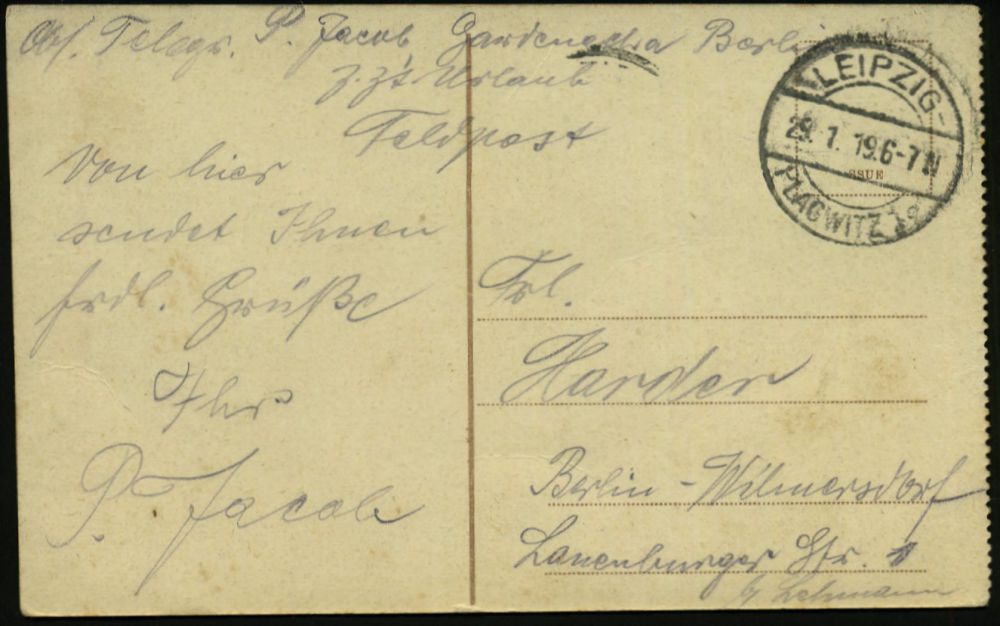 Abs. Telegr. P. Jacob Berlin
z. Zt. Urlaub
Feldpost
Von hier
sendet Ihnen
frdl. Grüße
Ihr
P. Jacob
LEIPZIG-
29. 1. 19.6-7 N
PLAGWITZ
SSUE
Frl.
Harder
Berlin-Wilmersdorf
Lauenburger Str. 1
b/ Lehmann